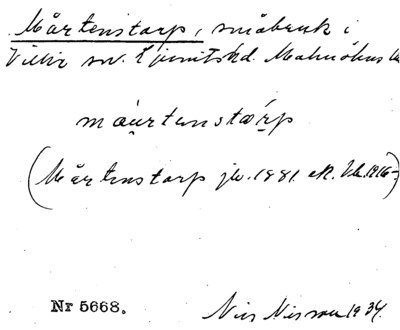 Mårtenstorp, småbruk i
Villie sn. Ljunits hd. Malmöhus l.
måurtenstårp
(Mårtenstorp jb. 1881 ek. kb. 1916-)
Nr 5668.
Nils Nilsson 1934.